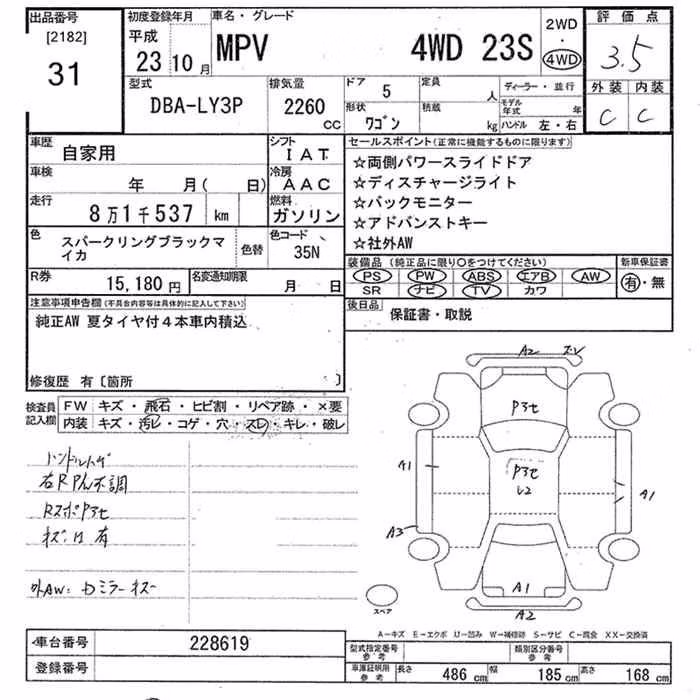 出品番号
[2182]
31
初度登録年月
平成
23 10 月
車名・グレード
MPV 4WD 23S
2WD
・
4WD
評価点
3.5
外装 内装
C C
型式
DBA-LY3P
排気量
2260
CC
ドア 5
形状
ワゴン
定員 人
積載 kg
ディーラー・並行
モデル年式 年
ハンドル 左・右
車歴
自家用
シフト
IAT
車検
年 月( 日)
冷房
AAC
走行
8万1千537 km
燃料
ガソリン
色
スパークリングブラックマ
イカ
色替
色コード
35N
R券
15,180 円
名変通知期限
月 日
セールスポイント(正常に機能するものに限ります)
☆両側パワースライドドア
☆ディスチャージライト
☆バックモニター
☆アドバンストキー
☆社外AW
装備品(純正品に限り○をつけてください)
PS PW ABS エアB AW
SR ナビ TV カワ
新車保証書
有・無
後日品
保証書・取説
注意事項申告欄(不具合内容等は具体的に記入して下さい)
純正AW 夏タイヤ付4本車内積込
修復歴 有〔箇所 〕
検査員
記入欄
FW キズ・飛石・ヒビ割・リペア跡・×要
内装 キズ・汚レ・コゲ・穴・スレ・キレ・破レ
ハンドル
不調
有
外AW:
A2
A1
A1
A3
A1
A2
スペア
A-キズ E-エクボ U-凹み W-補修跡 S-サビ C-腐食 XX-交換済
車台番号
228619
登録番号
型式指定番号
参考
類別区分番号
参考
車庫証明用
参考
長さ 486 cm
幅 185 cm
高さ 168 cm